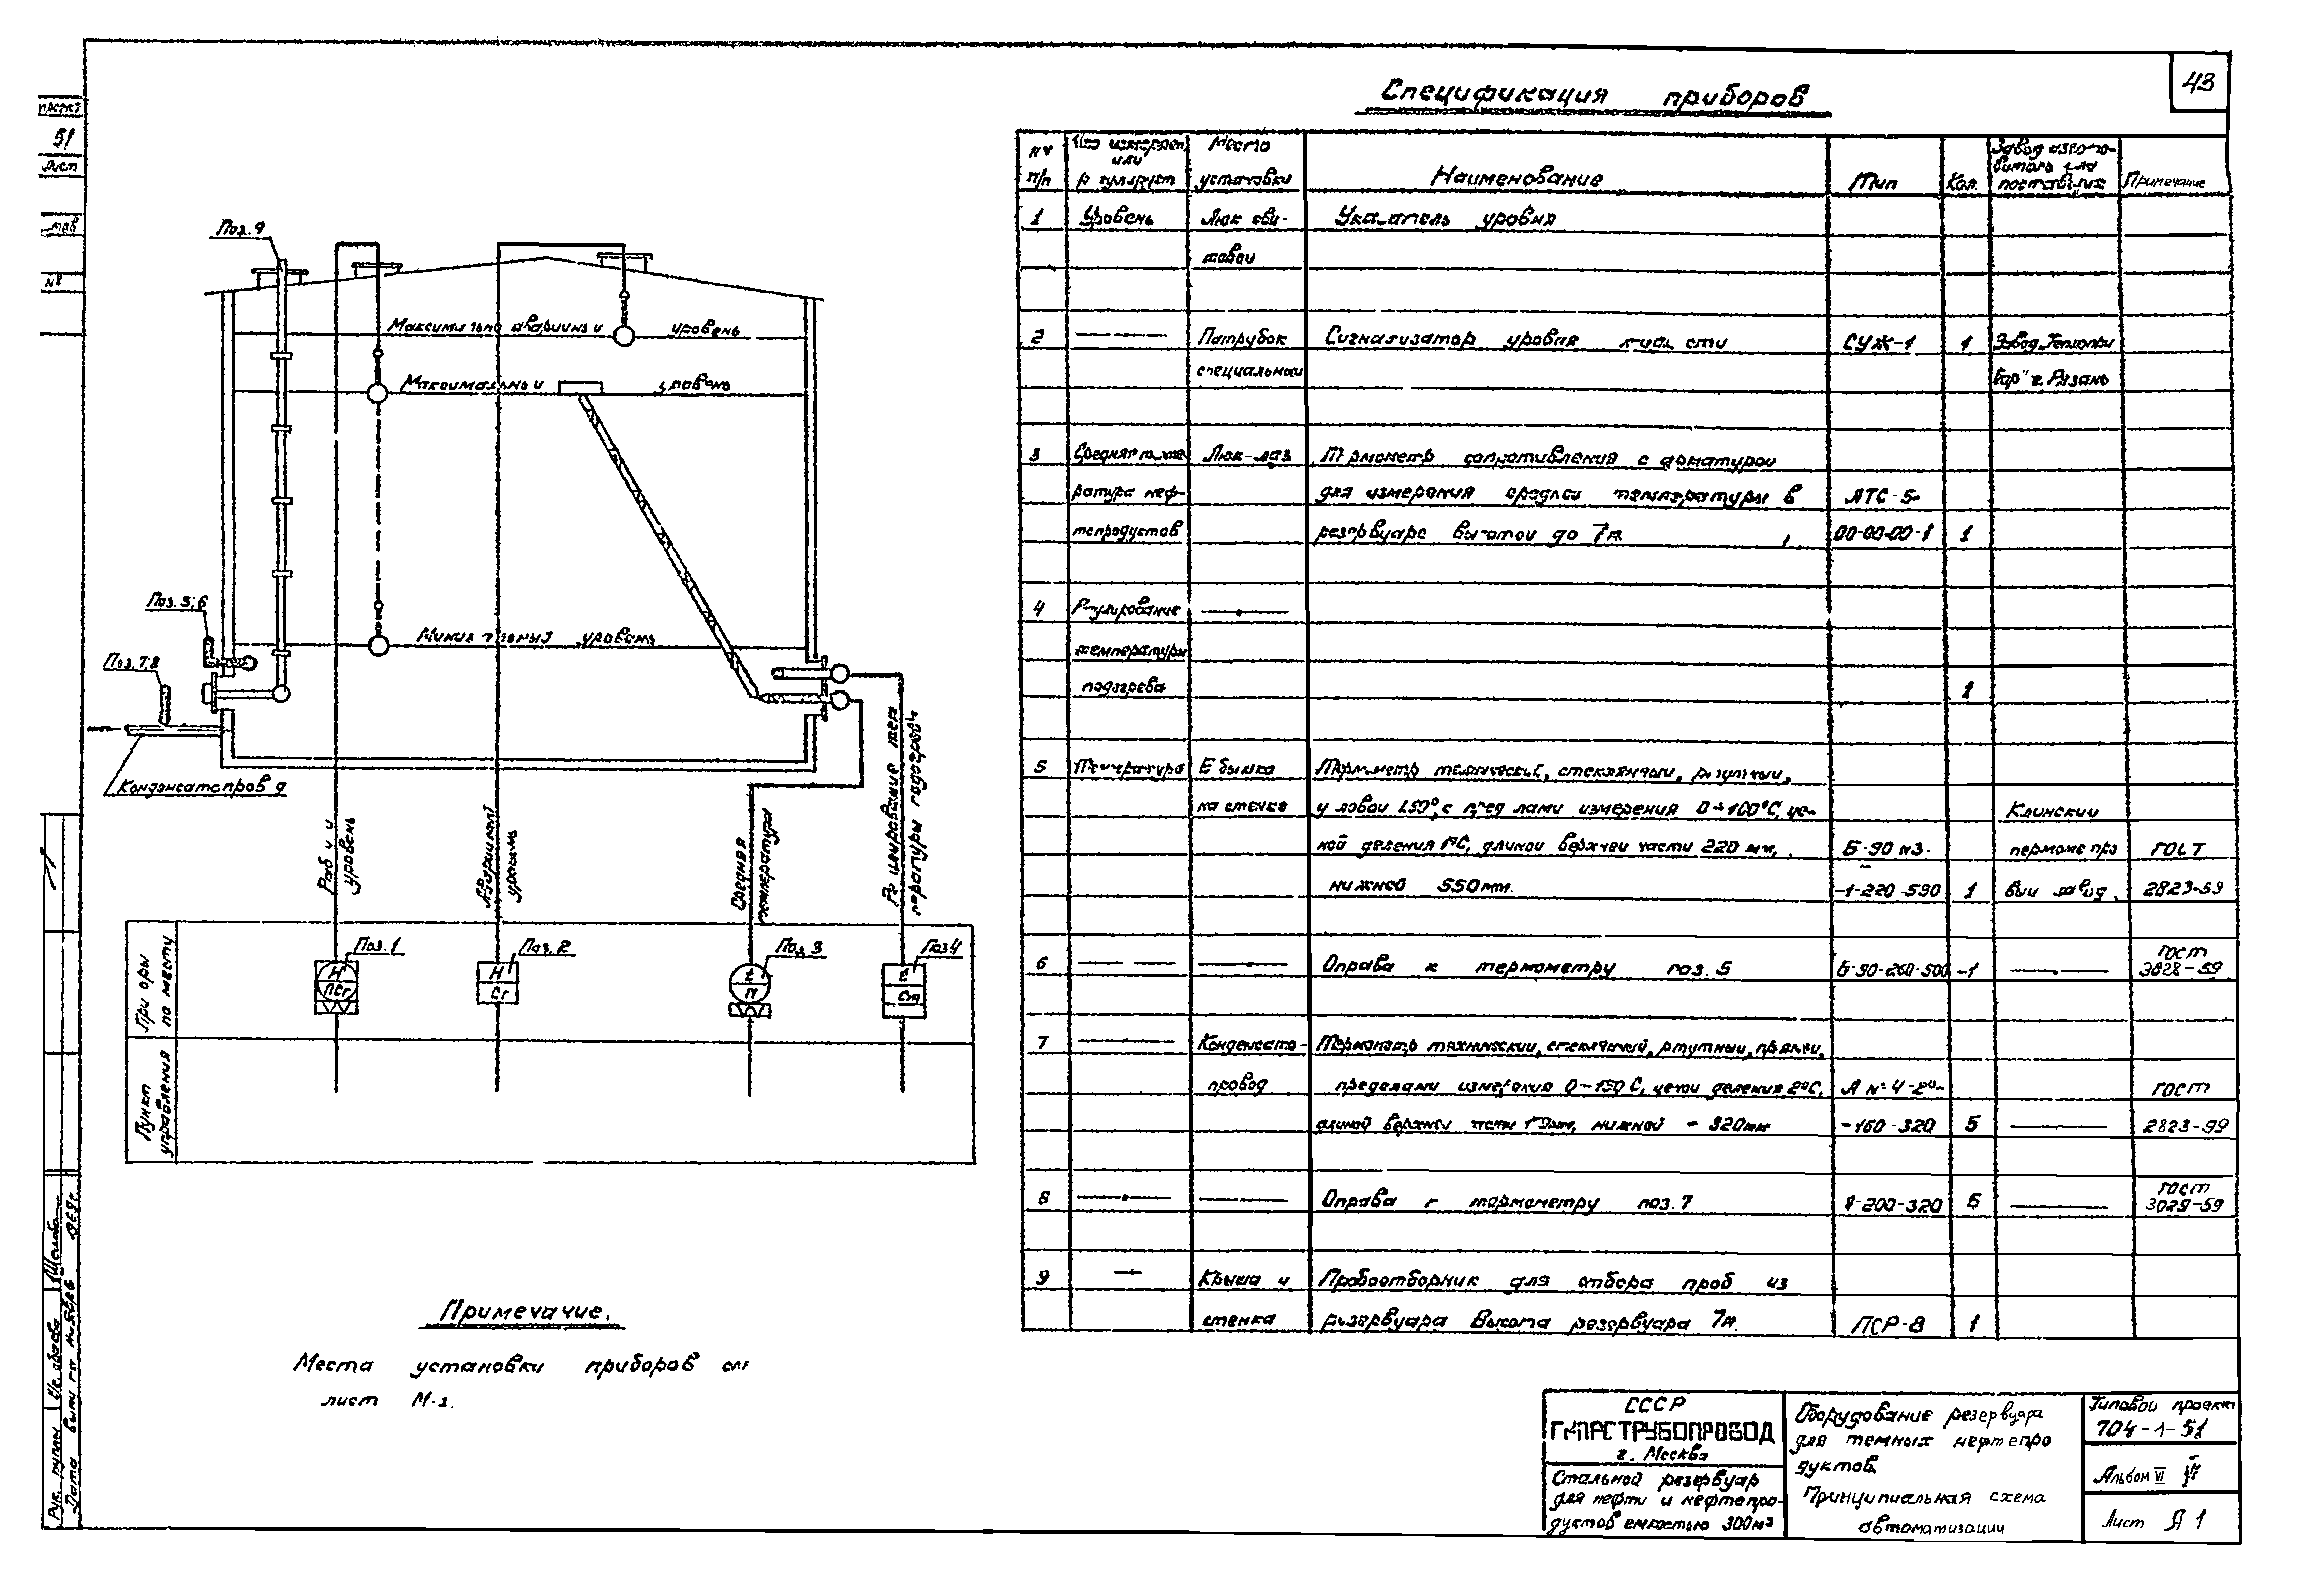 43
Спецификация приборов
проект
51
Лист
№
Поз. 9
Максимально аварийный уровень
Максимальный уровень
Минимальный уровень
Поз. 5; 6
Поз. 7; 8
Конденсатопровод
уровень
Аварийный
уровень
Средняя
температура
Регулирование тем
пературы подогрева
Приборы
по месту
Пункт
управления
Поз. 1
Н
ПСг
Поз. 2
Н
Сг
Поз. 3
П
Поз 4
Ст
Примечание.
Места установки приборов см
лист
п/п
Что измеряет
или
регулирует
Место
установки
Наименование
Тип
Кол.
Завод изгото-
витель или
поставщик
Примечание
1 Уровень Люк све- Указатель уровня
товой
2 Патрубок Сигнализатор уровня жидкости СУЖ-1 1 Завод „Теплопри
специальный бор" г. Рязань
3 Средняя темпе Люк-лаз Термометр сопротивления с арматурой
ратура неф- для измерения средней температуры в АТС-5-
тепродуктов резервуаре высотой до 7м. 00-00-00-1 1
4 Регулирование
температуры
подогрева 1
5 Температура Бобышка Термометр технический, стеклянный, ртутный,
на стенке угловой с пределами измерения 0÷100°С, це- Клинский
ной деления 1°С, длиной верхней части 220 мм, Б-90 №3- термометро ГОСТ
нижней 550мм. -1-220-590 1 вый завод. 2823-59
6 Оправа к термометру поз. 5 Б-90-260-500 -1 ГОСТ
3828-59
7 Конденсато- Термометр технический, стеклянный, ртутный, прямой,
провод пределами измерения 0-150 С, ценой деления 2°С, А №4-2°- ГОСТ
длиной верхней части нижней - 320мм -160-320 5 2823-99
8 Оправа к термометру поз. 7 -200-320 5 ГОСТ
3029-59
9 Крыша и Пробоотборник для отбора проб из
стенка резервуара Высота резервуара 7м. ПСР-8 1
СССР
ГИПРОТРУБОПРОВОД
г. Москва
Стальной резервуар
для нефти и нефтепро-
дуктов емкостью 300м³
Оборудование резервуара
для темных нефтепро
дуктов.
Принципиальная схема
автоматизации
Типовой проект
704-1-51
Альбом VI
Лист А 1
Рук. группы
Дата выпуска
1969г.